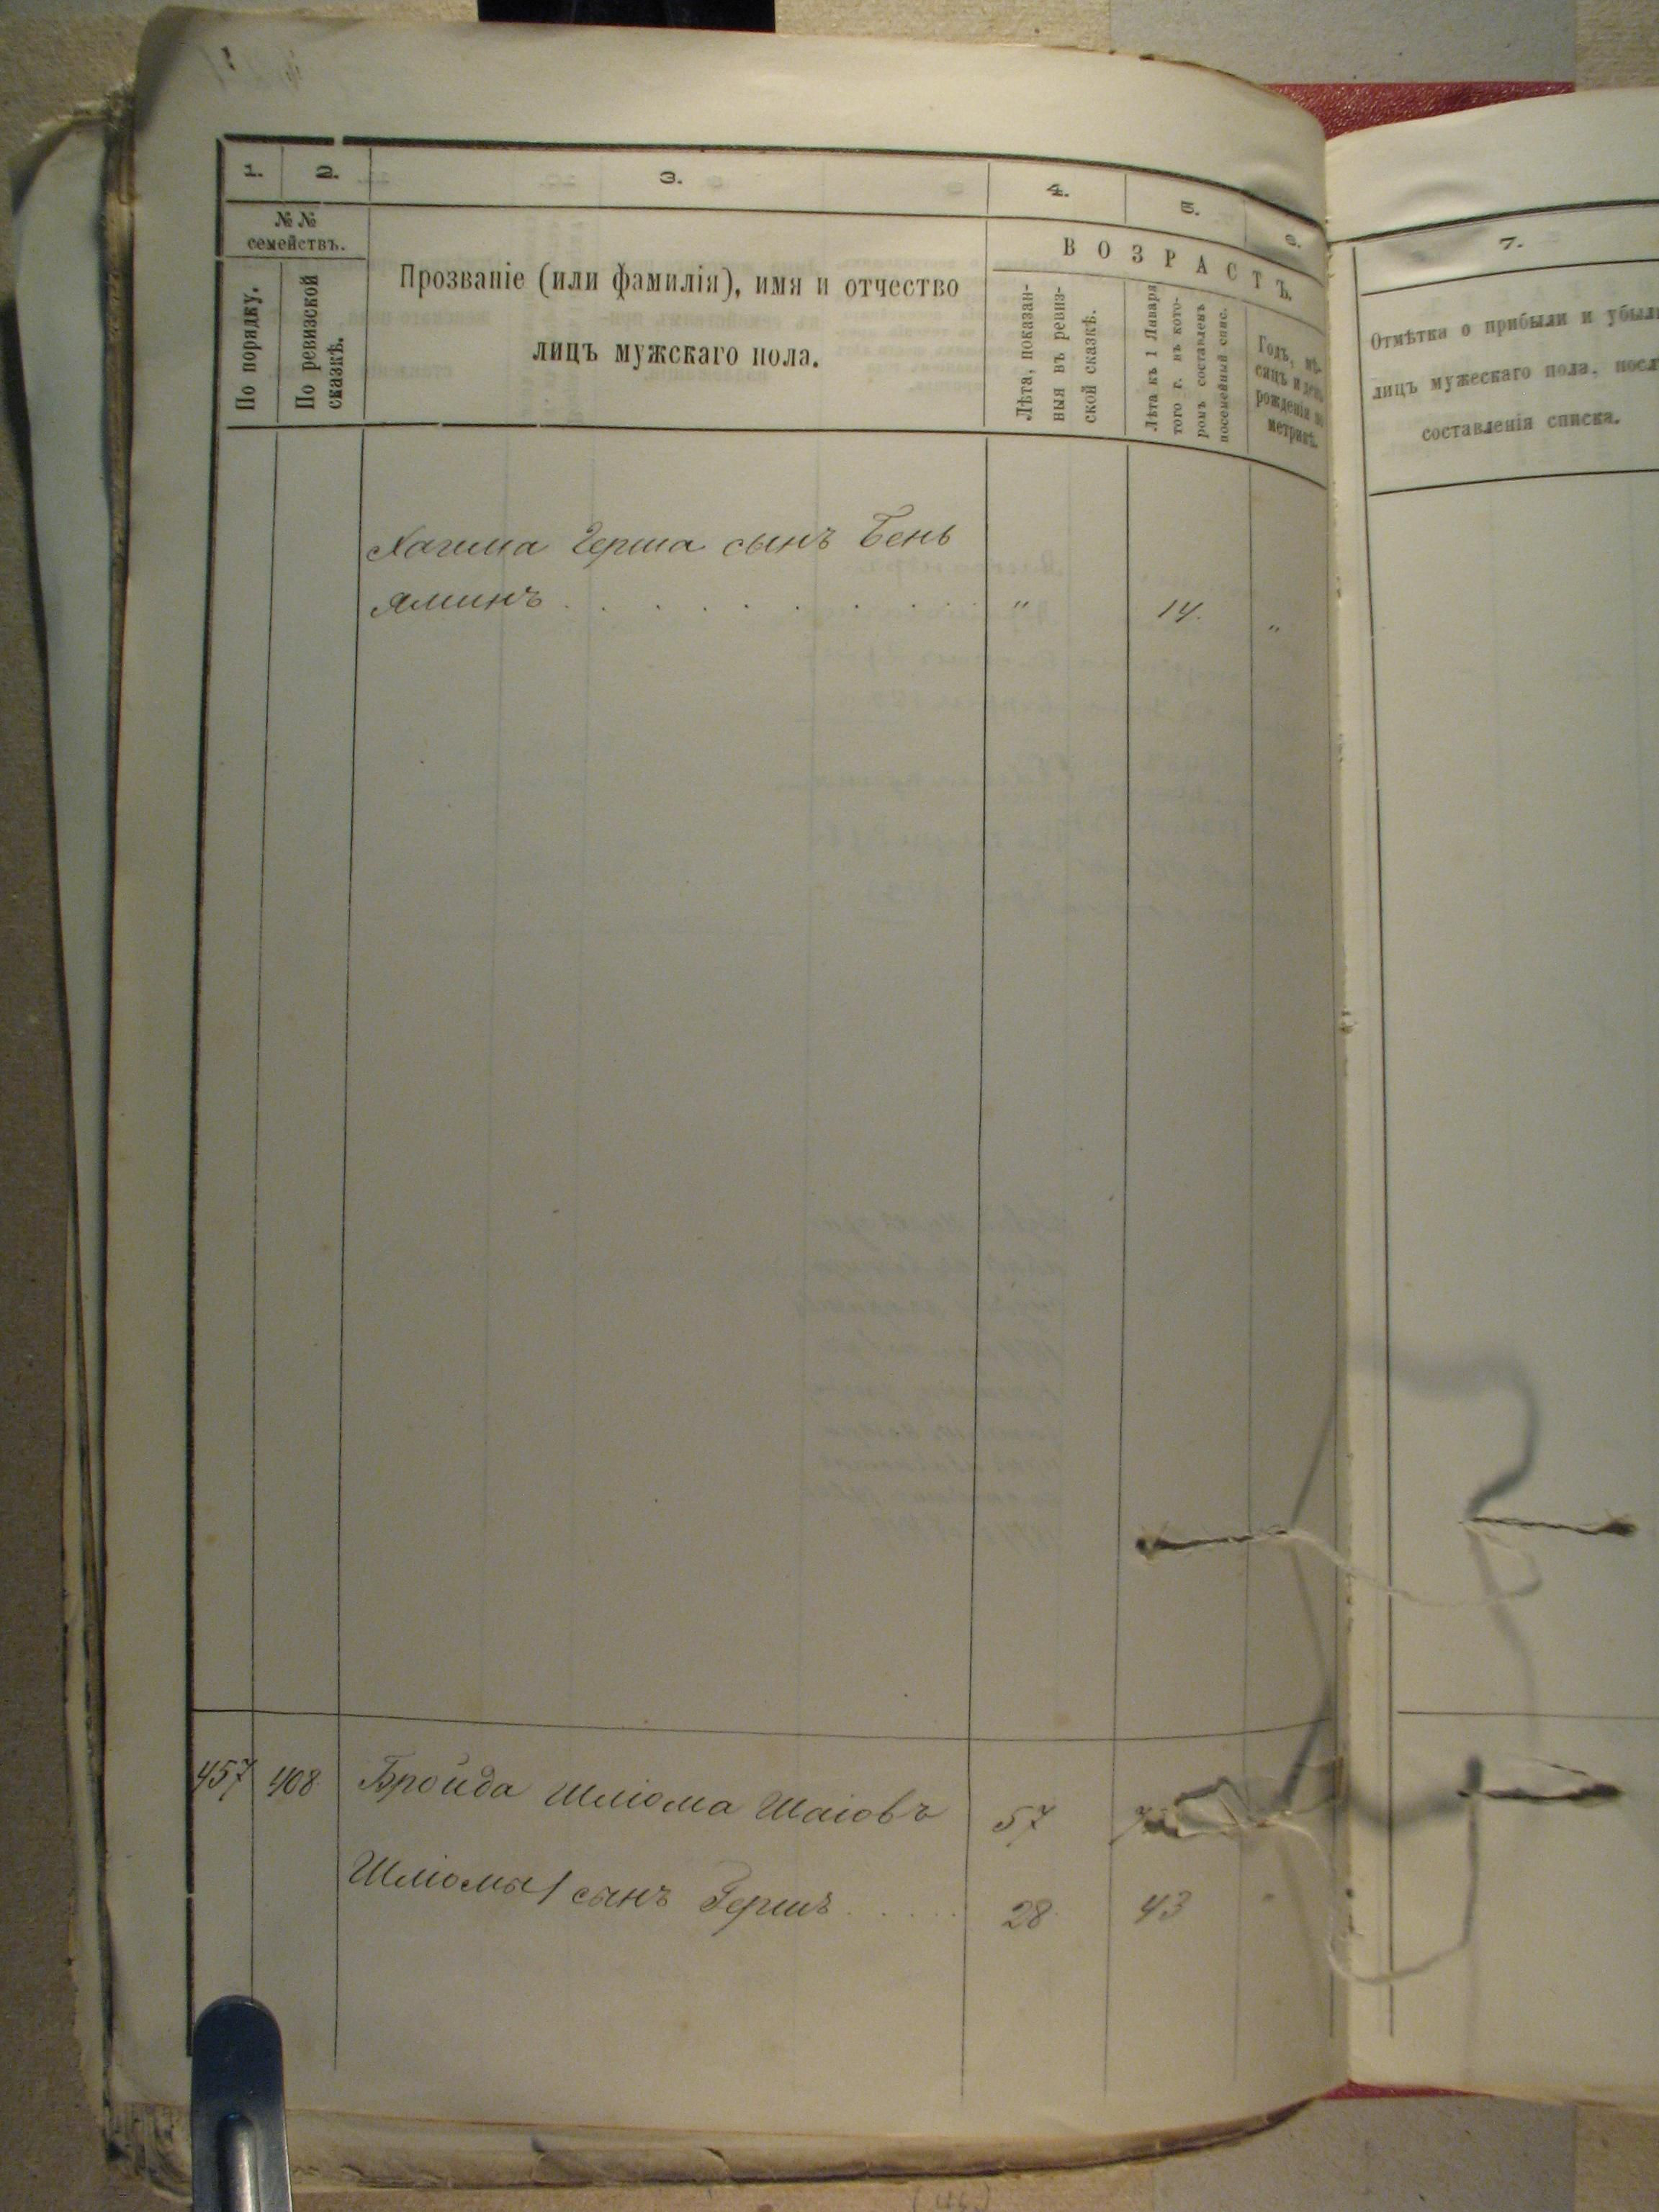 1.
2.
3.
4.
5.
6.
7.
№ № семействъ.
По порядку.
По ревизской
сказкѣ.
Прозваніе (или фамилія), имя и отчество
лицъ мужскаго пола.
ВОЗРАСТЪ.
Лѣта, показан-
ныя въ ревиз-
ской сказкѣ.
Лѣта къ 1 Января
того г. въ кото-
ромъ составленъ
посемейный спис.
Годъ, мѣ-
сяцъ и день
рожденія по
метрикѣ.
Отмѣтка о прибыли и убыли
лицъ мужескаго пола, посл
составленія списка.
Герша сынъ Бень
яминъ . . . . . . . . . " 14. "
457 408 Бройда Шліома Шаіовъ 57
Шліомы сынъ Гершъ . . . . . 28 43 "